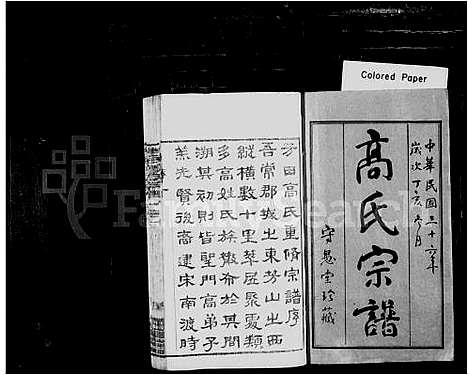 Colored Paper
中華民國三十六年
歲次丁亥冬月
高氏宗譜
守愚堂珍藏
芳田高氏重修宗譜序
吾常郡城之東芳山之西
縱橫數十里萃居聚處類
多高姓氏族散布於其間
溯其初則皆聖門高弟子
羔先賢後裔建宋南渡時
FamilySearch